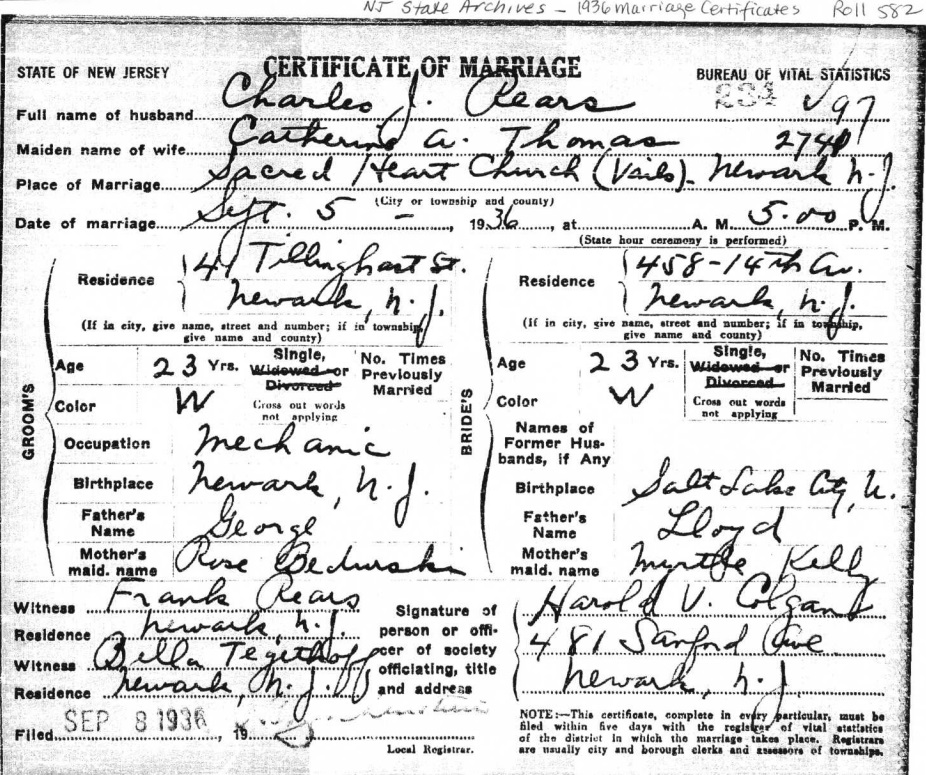 NJ State Archives – 1936 Marriage Certificates Roll 582
STATE OF NEW JERSEY CERTIFICATE OF MARRIAGE BUREAU OF VITAL STATISTICS
234 97
Full name of husband Charles J. Rears
Maiden name of wife Catherine A. Thomas 2741
Place of Marriage Sacred Heart Church (Vails). Newark N.J.
(City or township and county)
Date of marriage Sept. 5 – , 1936, at A. M. 5.00 P. M.
(State hour ceremony is performed)
GROOM'S
Residence 41 Tillinghast St.
Newark, N.J.
(If in city, give name, street and number; if in township, give name and county)
Age 23 Yrs. Single, Widowed or Divorced No. Times Previously Married
Cross out words not applying
Color W
Occupation Mechanic
Birthplace Newark, N.J.
Father's Name George
Mother's maid. name Rose
BRIDE'S
Residence 458-14th Av.
Newark, N.J.
(If in city, give name, street and number; if in township, give name and county)
Age 23 Yrs. Single, Widowed or Divorced No. Times Previously Married
Cross out words not applying
Color W
Names of Former Husbands, if Any
Birthplace Salt Lake City, U.
Father's Name Lloyd
Mother's maid. name Myrtle Kelly
Witness Frank Rears
Residence Newark, N.J.
Witness Bella Tegethoff
Residence Newark, N.J.
Signature of person or officer of society officiating, title and address
Harold V. Colgan
481 Sanford Ave
Newark, N.J.
Filed SEP 8 1936, 19
Local Registrar.
NOTE:—This certificate, complete in every particular, must be
filed within five days with the register of vital statistics
of the district in which the marriage takes place. Registrars
are usually city and borough clerks and assessors of townships.